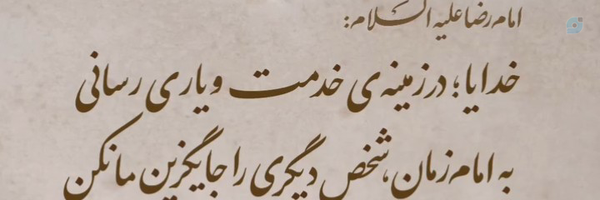 امام رضا علیه السلام:
خدایا؛ در زمینه‌ی خدمت و یاری رسانی
به امام زمان، شخص دیگری را جایگزین ما نکن